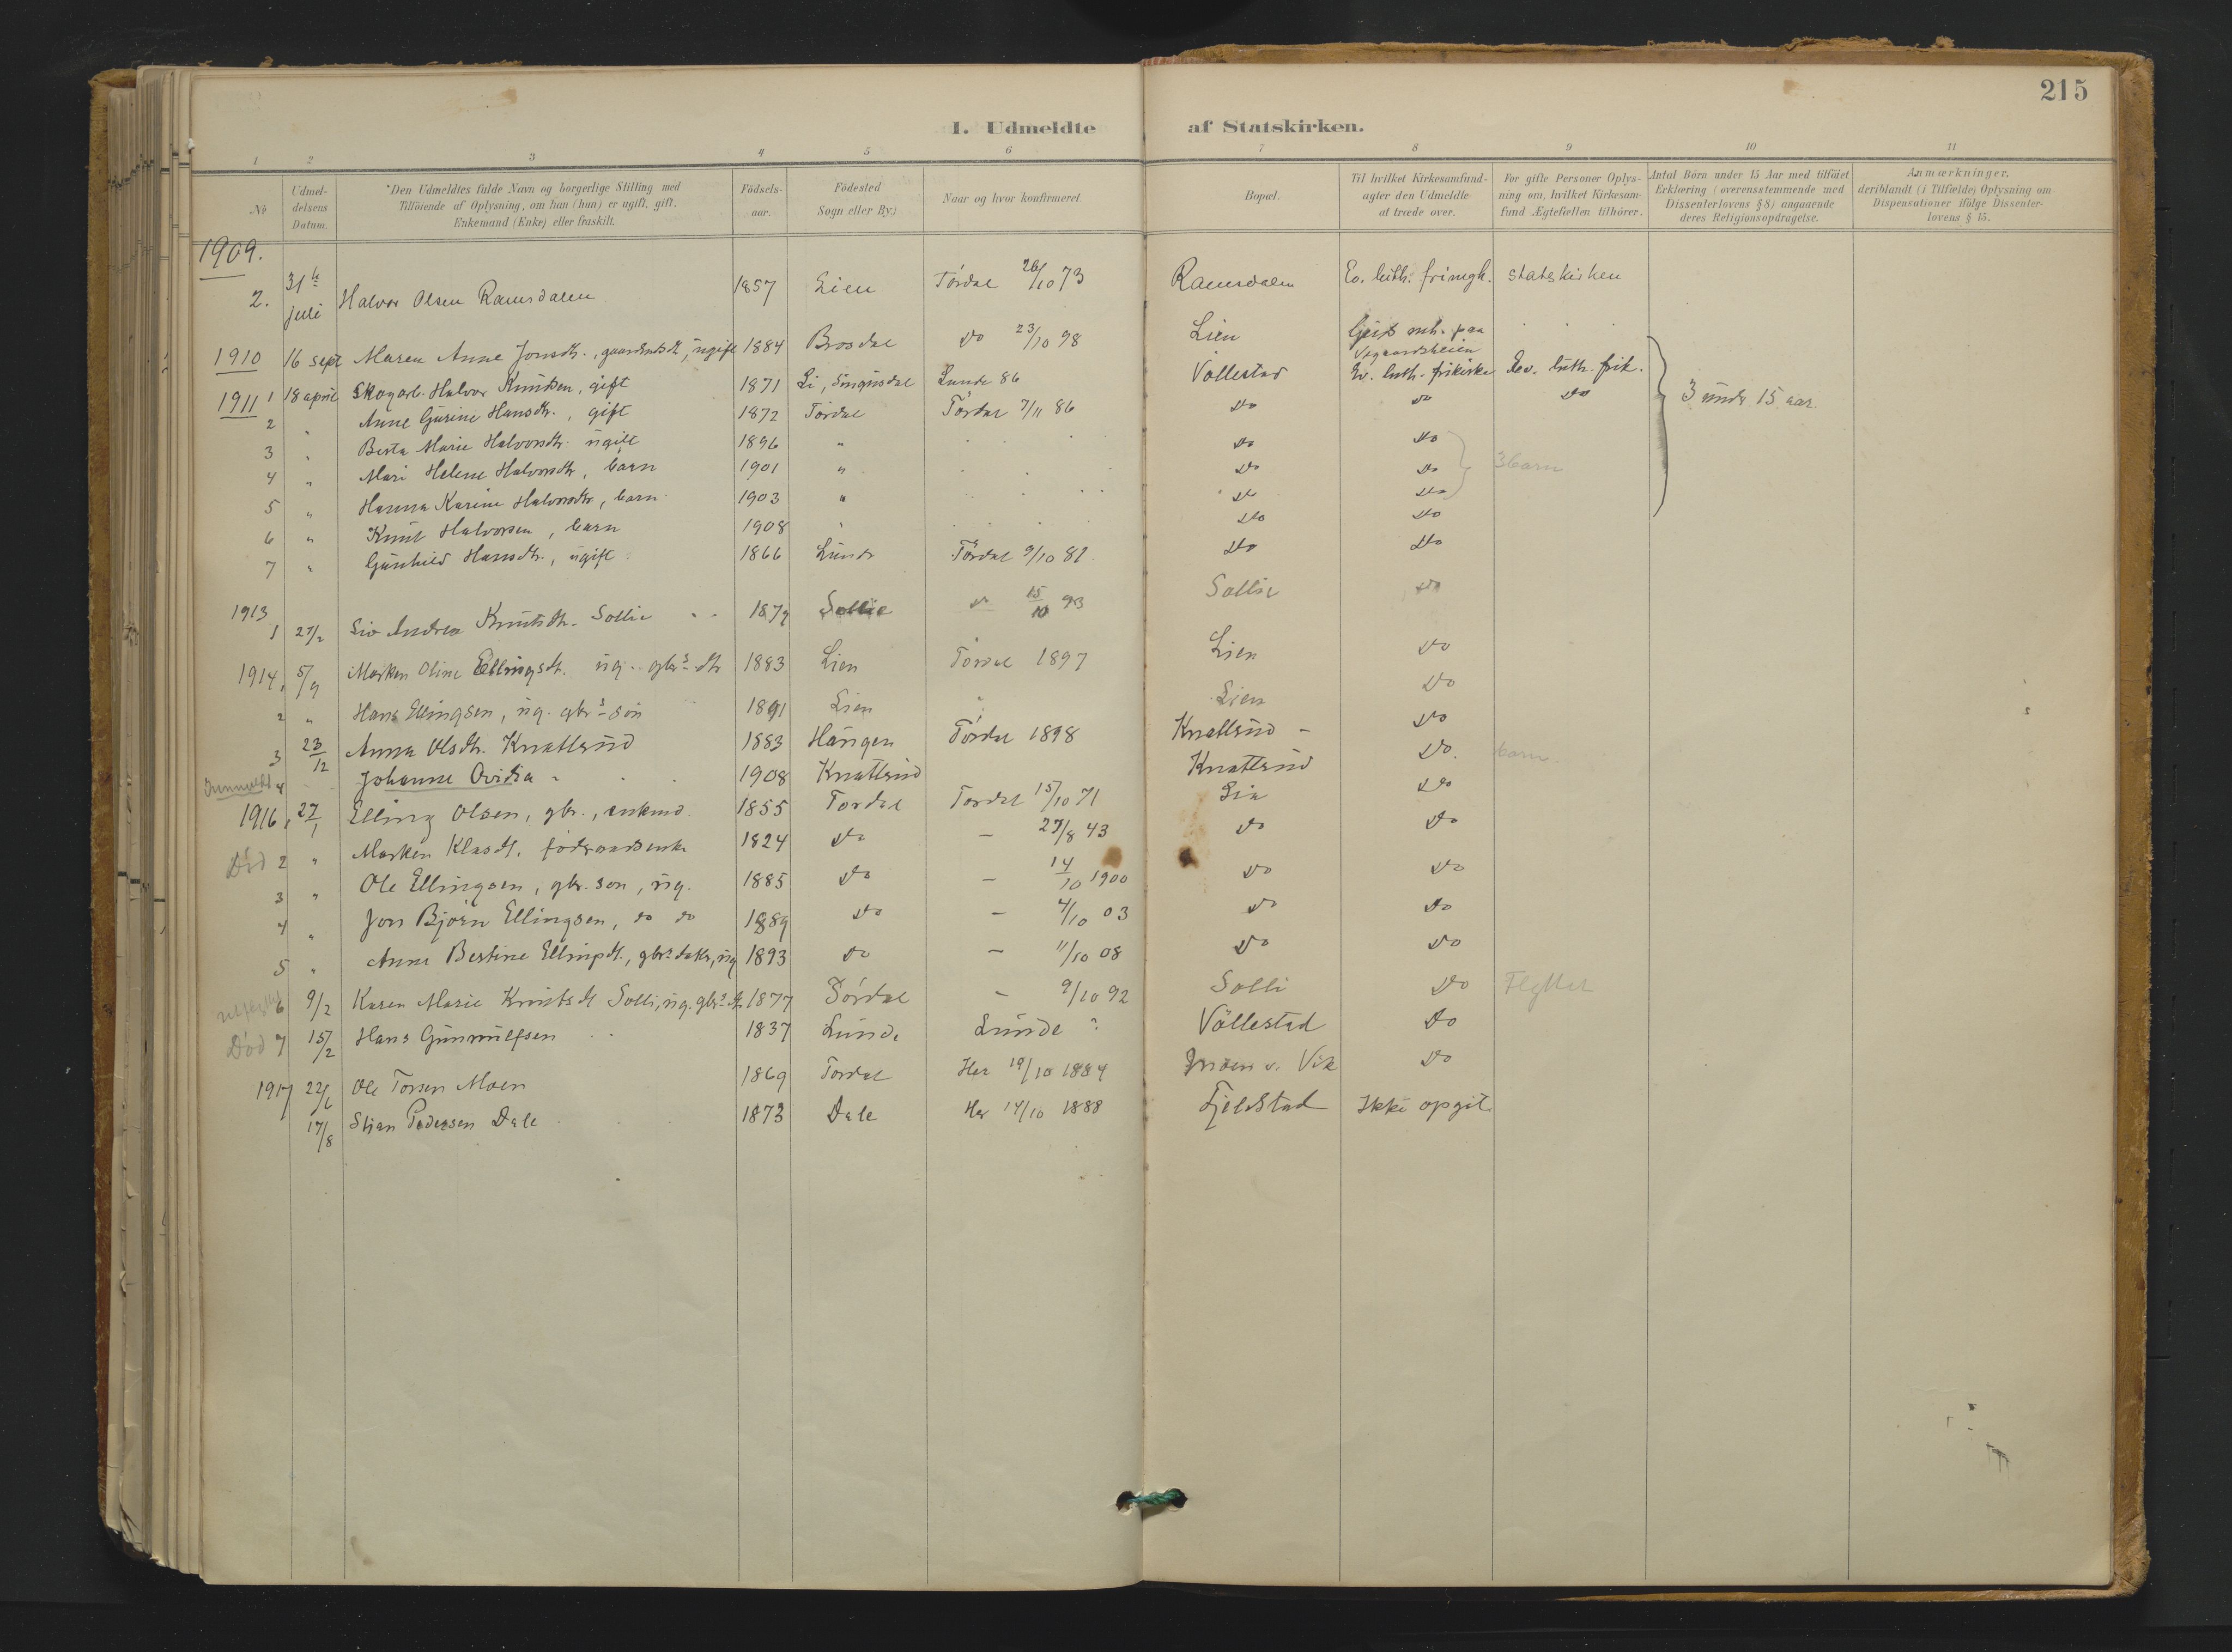 215
I. Udmeldte af Statskirken.
1 2 3 4 5 6 7 8 9 10 11
No
Udmeldelsens Datum.
*Den Udmeldtes fulde Navn og borgerlige Stilling med
Tilföiende af Oplysning, om han (hun) er ugift, gift,
Enkemand (Enke) eller fraskilt.
Födselsaar.
Födested
Sogn eller By.)
Naar og hvor konfirmeret.
Bopæl.
Til hvilket Kirkesamfund-
agter den Udmeldte
at træde over.
For gifte Personer Oplys-
ning om, hvilket Kirkesam-
fund Ægtefællen tilhörer.
Antal Börn under 15 Aar med tilföiet
Erklæring (overensstemmende med
Dissenterlovens § 8) angaaende
deres Religionsopdragelse.
Anmærkninger,
deriblandt (i Tilfælde) Oplysning om
Dispensationer ifölge Dissenter-
lovens § 15.
1909.
2. 31te juli Halvor Olsen Ramsdalen 1857 Lien Tördal 26/10 73 Ramsdalen Ev. luth. frimgh. statskirken
1910 16 sept Maren Anne Jonsdtr., ugift 1884 Brosdal do 23/10 98 Lien paa Vegaardsheien
1911 1 18 april Skogarb. Halvor Knudsen, gift 1871 Li, Lunde 86 Völlestad Ev. luth. frikirke Ev. luth. frik.
2 " Anne Gurine Hansdtr., gift 1872 Tördal Tördal 7/11 86 do do do 3 under 15 aar.
3 " Berta Marie Halvorsdtr. ugift 1896 " do do
4 " Mari Helene Halvorsdtr, barn 1901 " do do 3 barn
5 " Hanna Karine Halvorsdtr, barn 1903 " do do
6 " Knut Halvorsen, barn 1908 " do do
7 " Gunhild Hansdtr., ugift 1866 Lunde Tördal 9/10 82 do do
1913 1 27/2 Siv Andrea Knutsdtr. Sollie 1879 Sollie do 15/10 93 Sollie do
1914 1 5/9 Marken Oline Ellingsdtr. ug. gbrs dtr 1883 Lien Tördal 1897 Lien do
2 " Hans Ellingsen, ug. gbrs sön 1891 Lien " Lien do
3 23/12 Anna Olsdtr. Knattsund 1883 Haugen Tördal 1898 Knattsund - do
Innmeldt 4 Johanne Ovidia " 1908 Knattsund Knattsund do. barn
1916 1 27/1 Elling Olsen, gbr., enkmd. 1855 Tordal Tordal 15/10 71 Lia do
Död 2 " Marken Klasdt. föderaadsenke 1824 do - 27/8 43 do do
3 " Ole Ellingsen, gbr. son, ug. 1885 do - 14/10 1900 do do
4 " Jon Björn Ellingsen, do do 1889 do - 4/10 03 do do
5 " Anne Bertine Ellingsdt., ug 1893 do - 11/10 08 do do
6 9/2 Karen Marie Knutsdt Solli, ug. gbrs dtr 1877 Tördal - 9/10 92 Solli do Flyttet
Död 7 15/2 Hans Gunnulfsen 1837 Lunde Lunde ? Völlestad do
1917 22/6 Ole Torsen Moen 1869 Tordal Her 19/10 1884 Moen v. Vik do
17/8 Stian Pedersen Dale 1873 Dale Her 14/10 1888 Fjeldstad Ikke opgit.